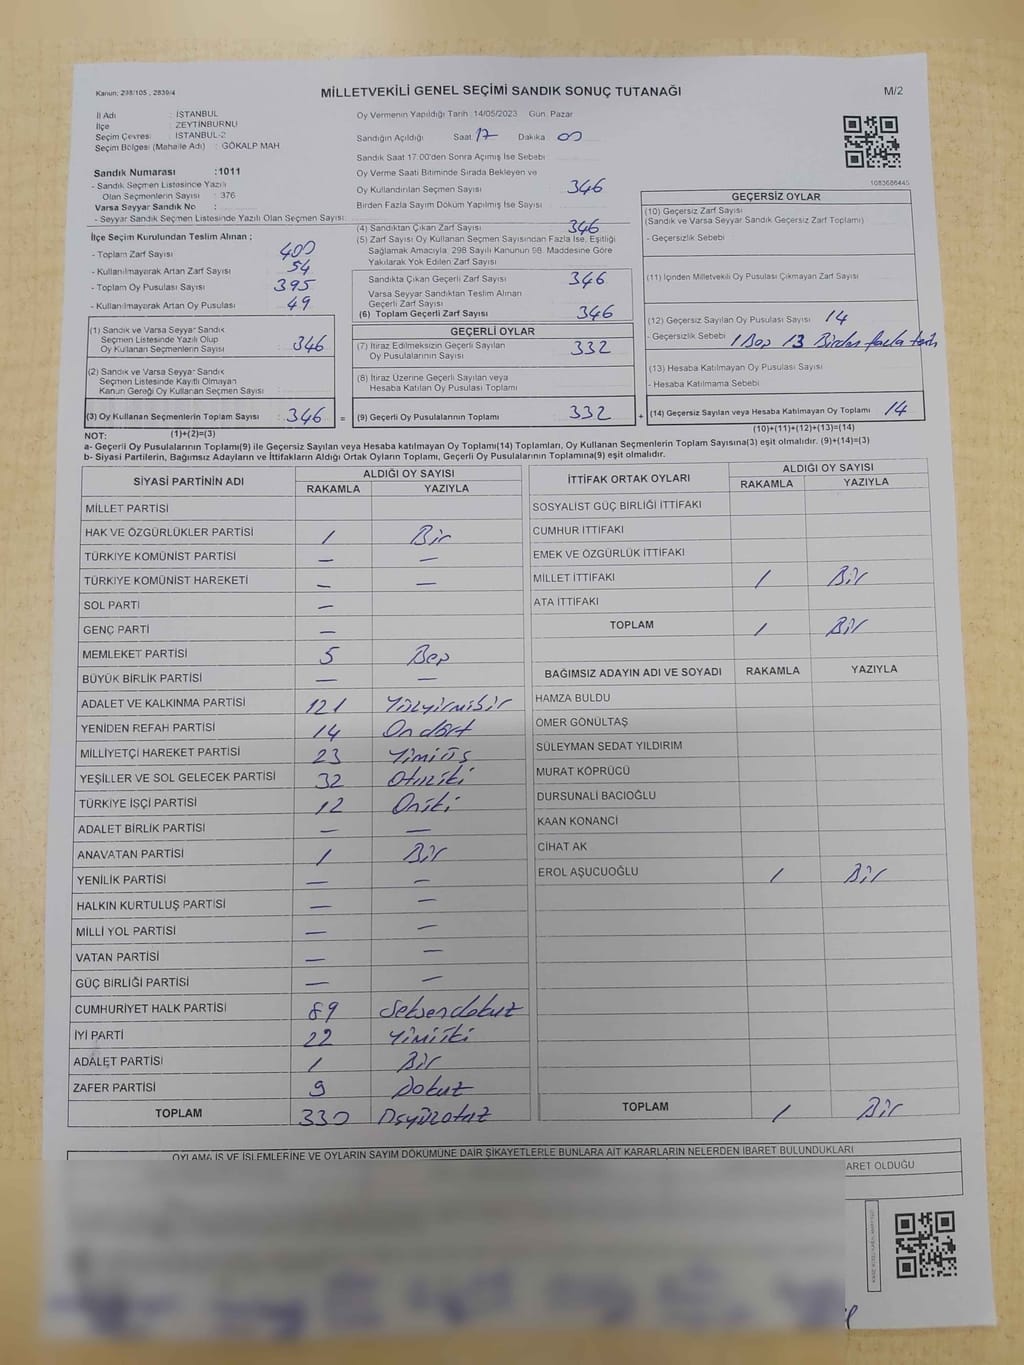 Kanun: 298/105 , 2839/4
MİLLETVEKİLİ GENEL SEÇİMİ SANDIK SONUÇ TUTANAĞI
M/2
İl Adı : İSTANBUL
İlçe : ZEYTİNBURNU
Seçim Çevresi : İSTANBUL-2
Seçim Bölgesi (Mahalle Adı) : GÖKALP MAH
Sandık Numarası : 1011
- Sandık Seçmen Listesinde Yazılı
Olan Seçmenlerin Sayısı : 376
Varsa Seyyar Sandık No
- Seyyar Sandık Seçmen Listesinde Yazılı Olan Seçmen Sayısı:
İlçe Seçim Kurulundan Teslim Alınan ;
- Toplam Zarf Sayısı 400
- Kullanılmayarak Artan Zarf Sayısı 54
- Toplam Oy Pusulası Sayısı 395
- Kullanılmayarak Artan Oy Pusulası 49
(1) Sandık ve Varsa Seyyar Sandık
Seçmen Listesinde Yazılı Olup
Oy Kullanan Seçmenlerin Sayısı 346
(2) Sandık ve Varsa Seyyar Sandık
Seçmen Listesinde Kayıtlı Olmayan
Kanun Gereği Oy Kullanan Seçmen Sayısı
(3) Oy Kullanan Seçmenlerin Toplam Sayısı 346 =
(1)+(2)=(3)
Oy Vermenin Yapıldığı Tarih :14/05/2023 Gün :Pazar
Sandığın Açıldığı Saat 17 Dakika 00
Sandık Saat 17:00'den Sonra Açımış İse Sebebi
Oy Verme Saati Bitiminde Sırada Bekleyen ve
Oy Kullandırılan Seçmen Sayısı 346
Birden Fazla Sayım Döküm Yapılmış İse Sayısı
(4) Sandıktan Çıkan Zarf Sayısı 346
(5) Zarf Sayısı Oy Kullanan Seçmen Sayısından Fazla İse, Eşitliği
Sağlamak Amacıyla; 298 Sayılı Kanunun 98. Maddesine Göre
Yakılarak Yok Edilen Zarf Sayısı
Sandıkta Çıkan Geçerli Zarf Sayısı 346
Varsa Seyyar Sandıktan Teslim Alınan
Geçerli Zarf Sayısı
(6) Toplam Geçerli Zarf Sayısı 346
GEÇERLİ OYLAR
(7) İtiraz Edilmeksizin Geçerli Sayılan
Oy Pusulalarının Sayısı 332
(8) İtiraz Üzerine Geçerli Sayılan veya
Hesaba Katılan Oy Pusulası Toplamı
(9) Geçerli Oy Pusulalarının Toplamı 332 +
1083686445
GEÇERSİZ OYLAR
(10) Geçersiz Zarf Sayısı
(Sandık ve Varsa Seyyar Sandık Geçersiz Zarf Toplamı)
- Geçersizlik Sebebi
(11) İçinden Milletvekili Oy Pusulası Çıkmayan Zarf Sayısı
(12) Geçersiz Sayılan Oy Pusulası Sayısı 14
- Geçersizlik Sebebi 1 Boş 13 Birden fazla
(13) Hesaba Katılmayan Oy Pusulası Sayısı
- Hesaba Katılmama Sebebi
(14) Geçersiz Sayılan veya Hesaba Katılmayan Oy Toplamı 14
(10)+(11)+(12)+(13)=(14)
NOT:
a- Geçerli Oy Pusulalarının Toplamı(9) ile Geçersiz Sayılan veya Hesaba katılmayan Oy Toplamı(14) Toplamları, Oy Kullanan Seçmenlerin Toplam Sayısına(3) eşit olmalıdır. (9)+(14)=(3)
b- Siyasi Partilerin, Bağımsız Adayların ve İttifakların Aldığı Ortak Oyların Toplamı, Geçerli Oy Pusulalarının Toplamına(9) eşit olmalıdır.
SİYASİ PARTİNİN ADI ALDIĞI OY SAYISI
RAKAMLA YAZIYLA
MİLLET PARTİSİ
HAK VE ÖZGÜRLÜKLER PARTİSİ 1 Bir
TÜRKİYE KOMÜNİST PARTİSİ — —
TÜRKİYE KOMÜNİST HAREKETİ — —
SOL PARTİ —
GENÇ PARTİ —
MEMLEKET PARTİSİ 5 Beş
BÜYÜK BİRLİK PARTİSİ — —
ADALET VE KALKINMA PARTİSİ 121 Yüzyirmibir
YENİDEN REFAH PARTİSİ 14 Ondört
MİLLİYETÇİ HAREKET PARTİSİ 23 Yimiüç
YEŞİLLER VE SOL GELECEK PARTİSİ 32 Otuziki
TÜRKİYE İŞÇİ PARTİSİ 12 Oniki
ADALET BİRLİK PARTİSİ — —
ANAVATAN PARTİSİ 1 Bir
YENİLİK PARTİSİ — —
HALKIN KURTULUŞ PARTİSİ — —
MİLLİ YOL PARTİSİ — —
VATAN PARTİSİ — —
GÜÇ BİRLİĞİ PARTİSİ — —
CUMHURİYET HALK PARTİSİ 89 Seksendokuz
İYİ PARTİ 22 Yimiiki
ADALET PARTİSİ 1 Bir
ZAFER PARTİSİ 9 Dokuz
TOPLAM 330
İTTİFAK ORTAK OYLARI ALDIĞI OY SAYISI
RAKAMLA YAZIYLA
SOSYALİST GÜÇ BİRLİĞİ İTTİFAKI
CUMHUR İTTİFAKI
EMEK VE ÖZGÜRLÜK İTTİFAKI
MİLLET İTTİFAKI 1 Bir
ATA İTTİFAKI
TOPLAM 1 Bir
BAĞIMSIZ ADAYIN ADI VE SOYADI RAKAMLA YAZIYLA
HAMZA BULDU
ÖMER GÖNÜLTAŞ
SÜLEYMAN SEDAT YILDIRIM
MURAT KÖPRÜCÜ
DURSUNALİ BACIOĞLU
KAAN KONANCİ
CİHAT AK
EROL AŞUCUOĞLU 1 Bir
TOPLAM 1 Bir
OYLAMA İŞ VE İŞLEMLERİNE VE OYLARIN SAYIM DÖKÜMÜNE DAİR ŞİKAYETLERLE BUNLARA AİT KARARLARIN NELERDEN İBARET BULUNDUKLARI
ARET OLDUĞU